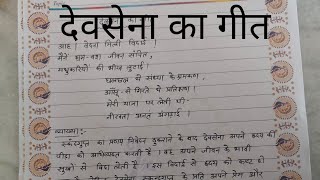 देवसेना का गीत
आह! वेदना मिली विदाई!
मैंने भ्रम-वश जीवन संचित,
मधुकरियों की भीख लुटाई।
छलछल थे संध्या के श्रमकण,
आँसू-से गिरते थे प्रतिक्षण।
मेरी यात्रा पर लेती थी-
नीरवता अनंत अँगड़ाई।
व्याख्या:-
स्कंदगुप्त का प्रणय निवेदन ठुकराने के बाद देवसेना अपने हृदय की
पीड़ा को अभिव्यक्त करती है। वह अपने जीवन के भावी
सुखों से विदा लेती है। इस विदाई से हृदय को
देवसेना स्कंदगुप्त के प्रति अपने प्रेम और